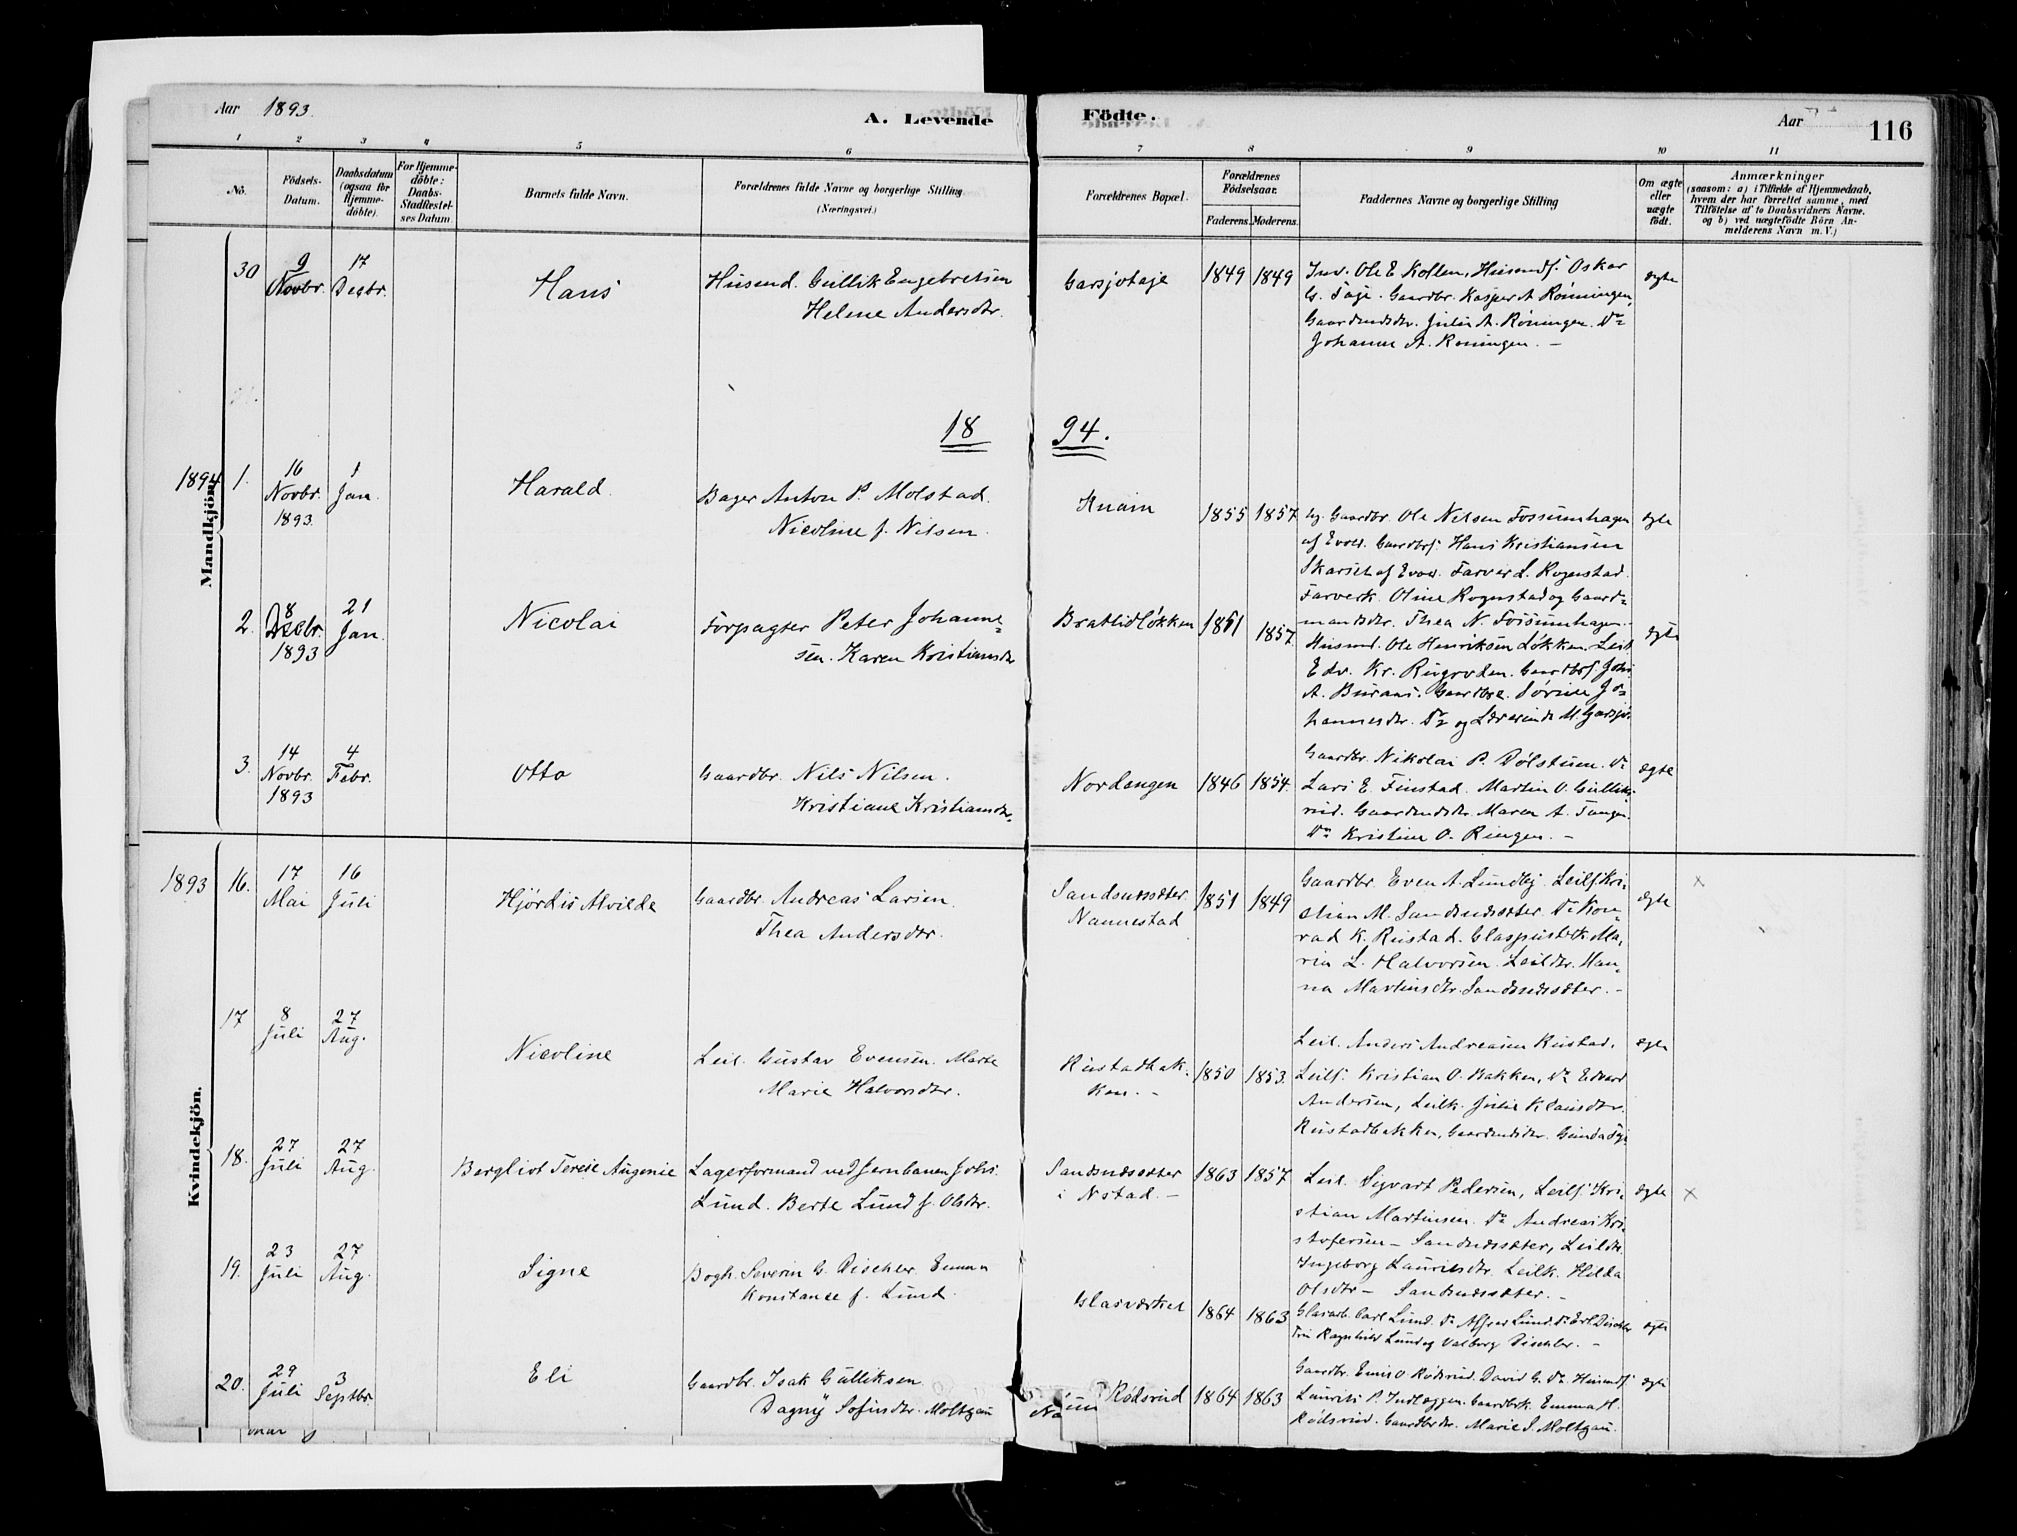 Aar 1893.
A. Levende
Födte.
Aar
116
1 2 3 4 5 6 7 8 9 10 11
No.
Födsels-
Datum.
Daabsdatum
(ogsaa for
Hjemme-
döbte).
For Hjemme-
döbte:
Daabs-
Stadfæstel-
ses Datum.
Barnets fulde Navn.
Forældrenes fulde Navne og borgerlige Stilling
(Næringsvei.)
Forældrenes Bopæl.
Forældrenes
Födselsaar.
Faderens. Moderens.
Faddernes Navne og borgerlige Stilling
Om ægte
eller
uægte
födt.
Anmærkninger
(saasom: a) i Tilfælde af Hjemmedaab,
hvem der har forrettet samme, med
Tilföielse af to Daabsvidners Navne.
og b) ved uægtefödte Börn An-
melderens Navn m. V.)
Mandkjön.
30
9
Novbr.
17
Decbr.
Hans
Husmd. Gullik Engebretsen
Helene Andersdtr.
Garsjotaje
1849 1849
Inv. Ole E. Kollen, Husmdf. Oskar
G. Taje. Gaardbr. Kasper A. Rönningen,
Gaardmdsdtr. Julie A. Röningen. Do
Johanne A. Roningen. –
ægte
18 94.
1894
1.
16
Novbr.
1893.
1
Jan.
Harald.
Bager Anton P. Molstad.
Nicoline f. Nilsen.
Knain
1855 1857
Gaardbr. Ole Nilsen Fossumhagen
af Evoll. Gaardbrs. Hans Kristiansen
Skarset af Evoll. Farver L. Rognstad.
Farverk. Oline Rognstad og Gaard-
mandsdtr. Thea N. Fossumhagen.
ægte
2.
8
Decbr.
1893
21
Jan.
Nicolai
Forpagter Peter Johanne-
sen. Karen Kristiansdtr
Bratlidløkken
1851 1857.
Husmd. Ole Henriksen Løkken. Leil.
Edv. Kr. Rugroden. Gaardbrs. Johs
A. Buraas. Gaardbrk. Sørine Jo-
hannesdtr. Do og Lærerinde M. Garsjø.
ægte
3.
14
Novbr.
1893
4
Febr.
Otto
Gaardbr. Nils Nilsen.
Kristiane Kristiansdtr.
Nordengen
1846 1854.
Gaardbr. Nikolai P. Dølstuen. Do
Lars E. Finstad. Martin O. Gulliks-
rud. Gaardmdsdtr. Maren A. Tangen.
Do Kristine O. Ringen. –
ægte
Kvindekjön.
1893
16.
17
Mai
16
Juli
Hjördis Alvilde
Gaardbr. Andreas Larsen.
Thea Andersdtr.
Sandsnæssæter.
Nannestad
1851 1849
Gaardbr. Even A. Lundby. Leilf. Kri-
stian M. Sandsnæssæter. Do Kon-
rad K. Rustad. Glaspusterk. Ma-
rin L. Halvorsen. Leildtr. Han-
na Martinsdtr. Sandsnæssæter. –
ægte
x
17
8
Juli
27
Aug.
Nicoline
Leil. Gustav Evensen. Marte
Marie Halvorsdtr.
Rustadbak-
ken. –
1850 1853.
Leil. Anders Andreasen Rustad.
Leilf. Kristian O. Bakken, Do Edvard
Andersen, Leilk. Julie Klausdtr.
Rustadbakken, Gaardmdsdtr. Gunda
ægte
18.
27
Juli
27
Aug.
Bergliot Terese Augenie
Lagerformand ved Jernbanen Johs.
Lund. Berte Lund f. Olsdtr.
Sandsnæssæter
i Nstad. –
1863 1857
Leil. Sigvart Pedersen, Leilf. Kri-
stian Martinsen. Do Andreas Kri-
stofersen – Sandsnæssæter, Leildtr.
Ingeborg Lauritsdtr. Leilk. Hilda
Olsdtr – Sandsnæssæter. –
ægte
x
19.
23
Juli
27
Aug.
Signe
Bogh. Severin G. Dischler. Emma
Konstance f. Lund.
Glasværket
1864 1863
Glasarb. Carl Lund. Do Alfred Lund. Do Erl. Dischler
Frk Ragnhild Lund og Valborg Dischler. –
ægte
20.
29
Juli
3
Septbr.
Eli
Gaardbr. Isak Gulliksen
Dagny Sofiesdtr. Moltzau
Rødsrud
1864 1863
Gaardbr. Enis O. Rødsrud. David G. Do Husmdf.
Laurits P. Indlæggen. Gaardbrk. Emma H.
Rødsrud. Gaardbrdtr. Marie S. Moltzau.
ægte